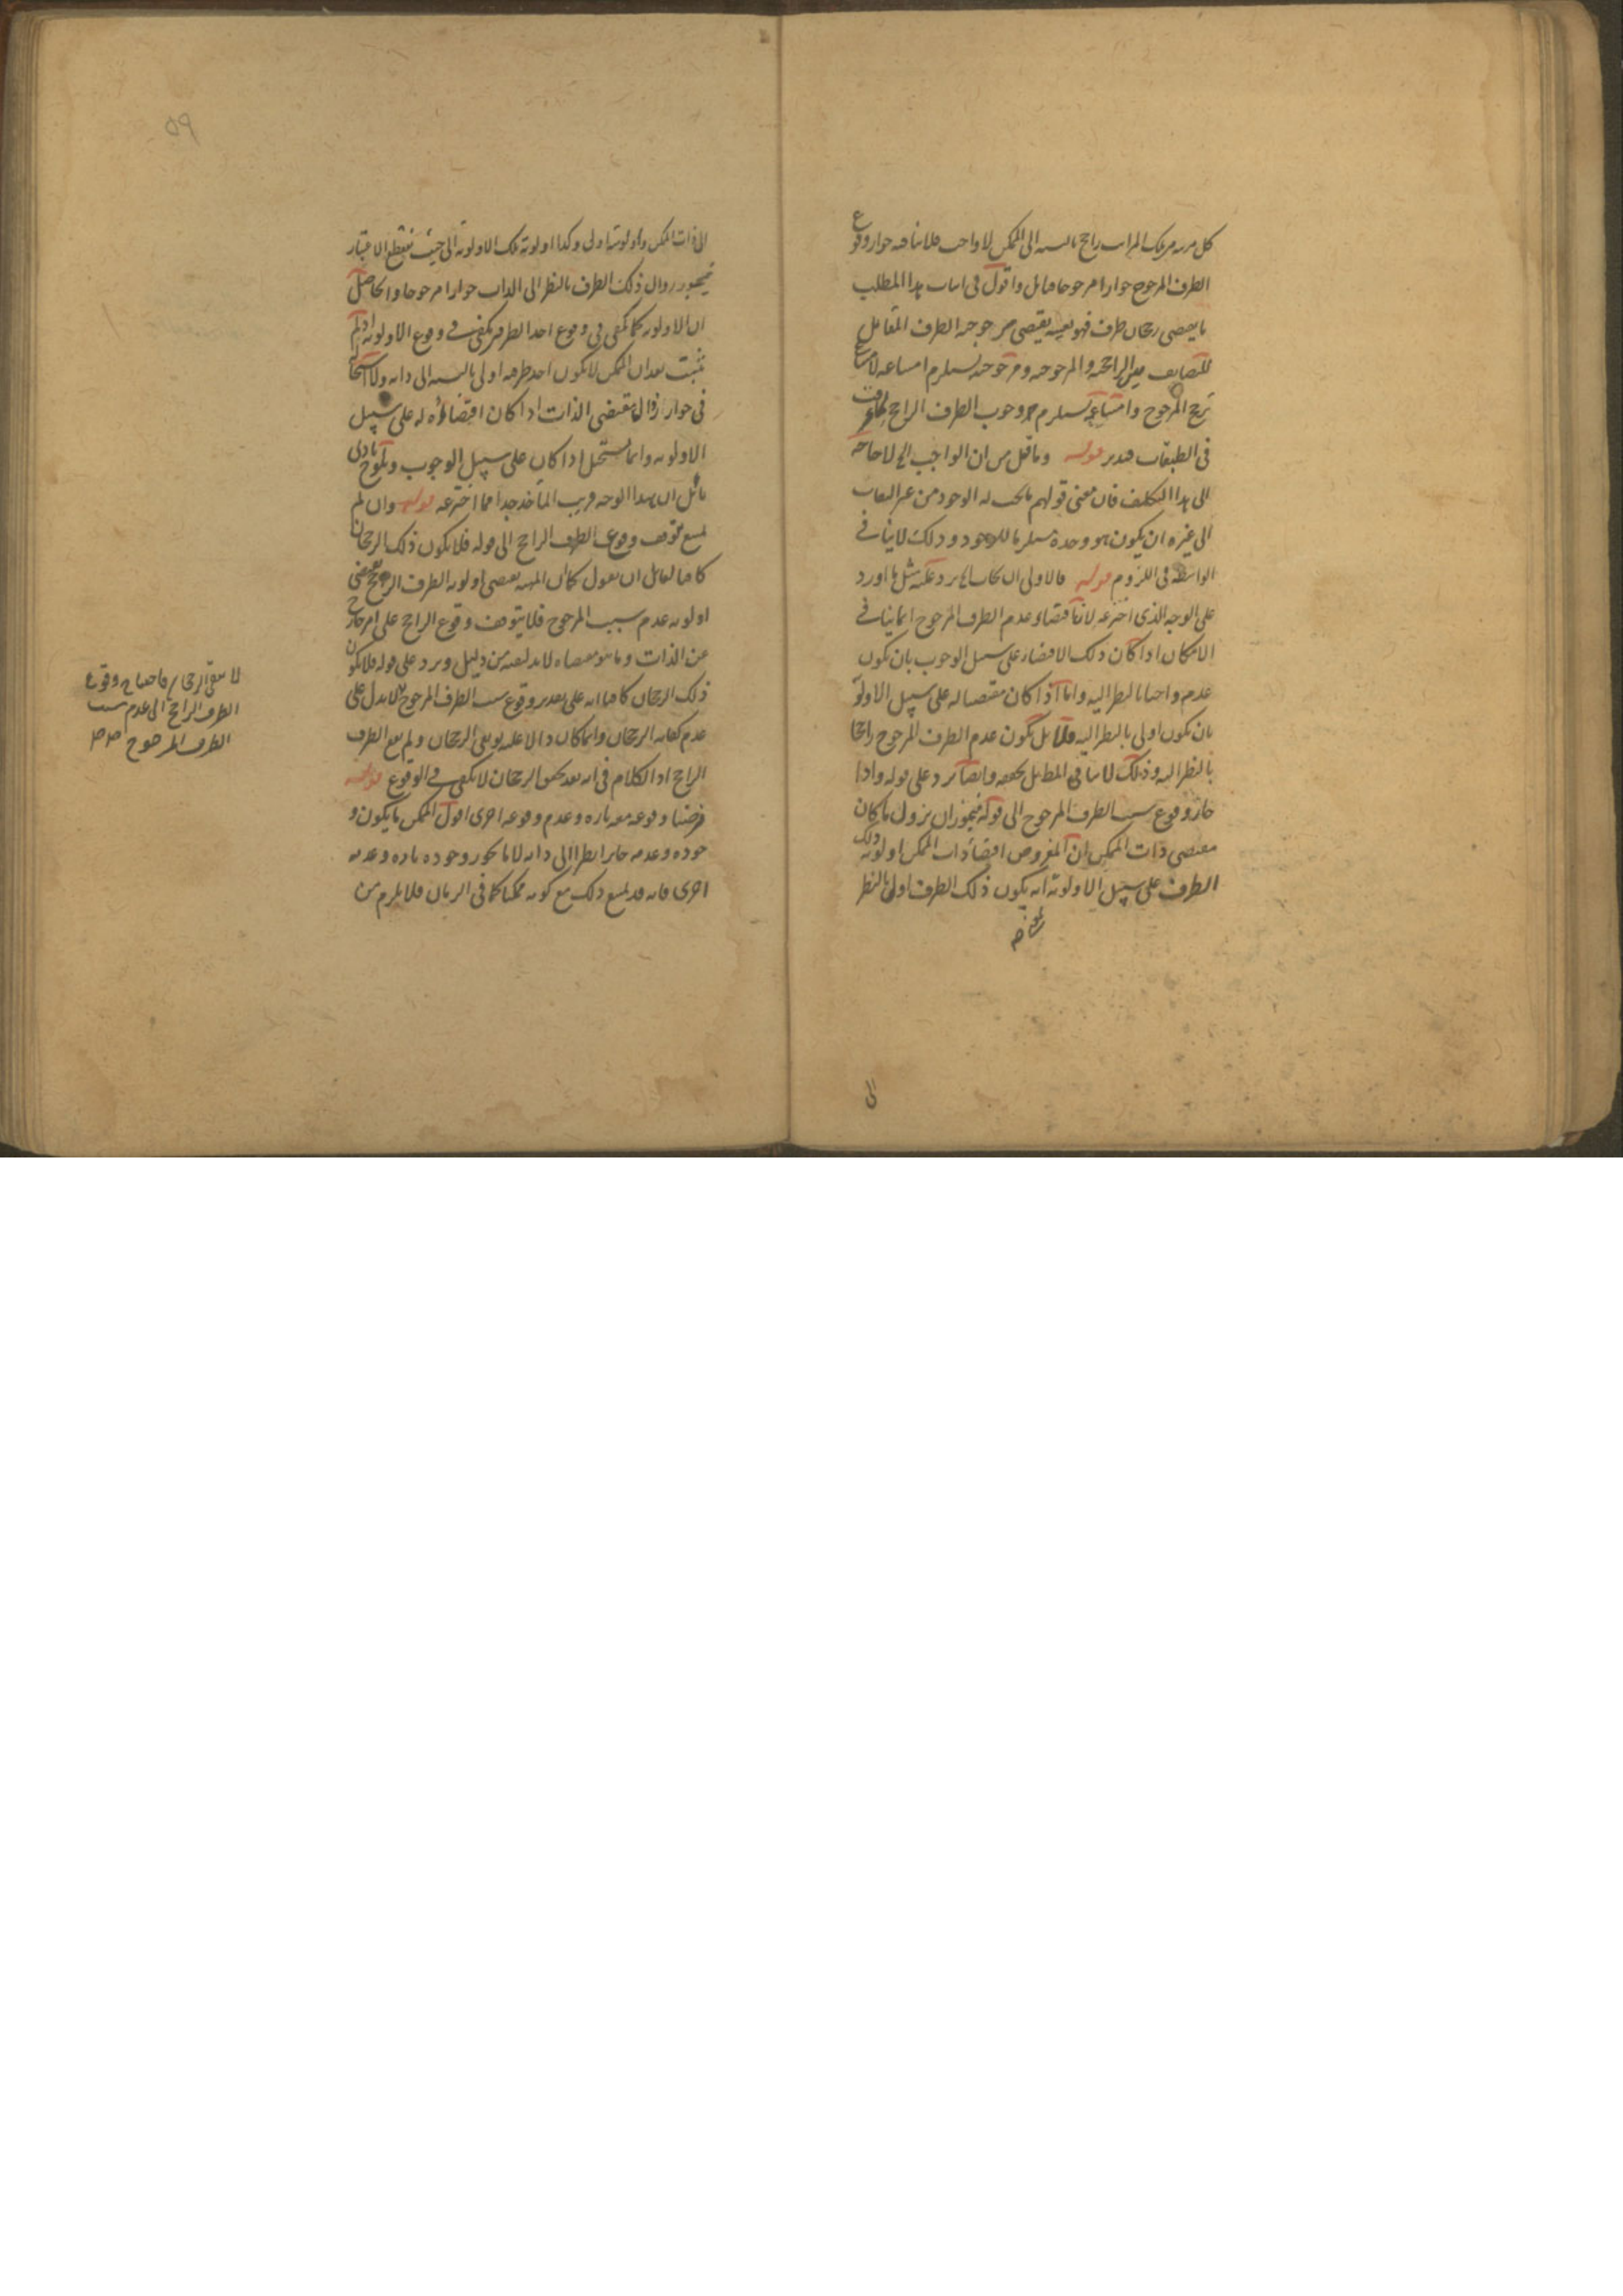 كل مرتبة من تلك المراتب راجح بالنسبة الى الممكن لا واجب فلا ينافيه جواز وقوع
الطرف المرجوح جوازا مرجوحا فتأمل واقول فى اثبات هذا المطلب
ما يقتضى رجحان طرف فهو بعينه يقتضى مرجوحية الطرف المقابل
للتضايف بين الراجحية والمرجوحية ومرجوحيته يستلزم امتناعه لامتناع
ترجح المرجوح وامتناعه يستلزم وجوب الطرف الراجح
فى الطبقات فتدبر قوله وما قيل من ان الواجب الخ لا حاجة
الى هذا التكلف فان معنى قولهم ما يجب له الوجود من غير التفات
الى غيره ان يكون هو وحده مستلزما للوجود وذلك لا ينافى
الواسطة فى اللزوم قوله فالاولى ان يجاب الخ يرد عليه مثل ما اورد
على الوجه الذى اخترعه لان اقتضاء عدم الطرف المرجوح انما ينافى
الامكان اذا كان ذلك الاقتضاء على سبيل الوجوب بان يكون
عدمه واجبا بالنظر اليه واما اذا كان مقتضيا له على سبيل الاولوية
بان يكون اولى بالنظر اليه فلا بل يكون عدم الطرف المرجوح راجحا
بالنظر اليه وذلك لا ينافى المطلب بل يحققه وايضا يرد على قوله واذا
جاز وقوع سبب الطرف المرجوح الى قوله فيجوز ان يزول ما كان
مقتضى ذات الممكن ان المفروض اقتضاء ذات الممكن اولوية ذلك
الطرف على سبيل الاولوية انه يكون ذلك الطرف اولى بالنظر
الى
٥٩
الى ذات الممكن واولويته اولى وكذا اولوية تلك الاولوية الى حيث ينقطع الاعتبار
فيجوز زوال ذلك الطرف بالنظر الى الذات جوازا مرجوحا والحاصل
ان الاولوية كما تكفى فى وقوع احد الطرفين تكفى فى وقوع الاولوية اذ لم
يثبت بعد ان الممكن لا يكون احد طرفيه اولى بالنسبة الى ذاته ولا استحالة
فى جواز زوال مقتضى الذات اذا كان اقتضاؤه له على سبيل
الاولوية وانما يستحيل اذا كان على سبيل الوجوب ويلوح بادنى
تأمل ان هذا الوجه قريب المأخذ جدا مما اخترعه قوله وان لم
يمنع توقف وقوع الطرف الراجح الى قوله فلا يكون ذلك الرجحان
كافيا لقائل ان يقول كما ان المهية يقتضى اولوية الطرف الراجح يقتضى
اولوية عدم سبب المرجوح فلا يتوقف وقوع الراجح على امر خارج
عن الذات وما هو مقتضاه لا بد لنفيه من دليل ويرد على قوله فلا يكون
ذلك الرجحان كافيا انه على تقدير وقوع سبب الطرف المرجوح لا يدل على
عدم كفاية الرجحان وانما كان دالا عليه لو بقى الرجحان ولم يقع الطرف
الراجح اذ الكلام فى انه بعد تحقق الرجحان لا يكفى فى الوقوع قوله
فرضنا وقوعه معه تارة وعدم وقوعه اخرى اقول الممكن ما يكون و
جوده وعدمه جايزا نظرا الى ذاته لا ما يجوز وجوده تارة وعدمه
اخرى فانه قد يمنع ذلك مع كونه ممكنا كما فى الزمان فلا يلزم من
لا يبقى الرجحان فاحتياج وقوع
الطرف الراجح الى عدم سبب
الطرف المرجوح